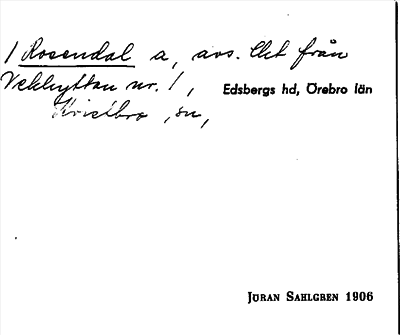 1 Rosendal a, avs. lht från
Vekhyttan nr. 1, Edsbergs hd, Örebro län
Kvistbro sn,
JÖRAN SAHLGREN 1906